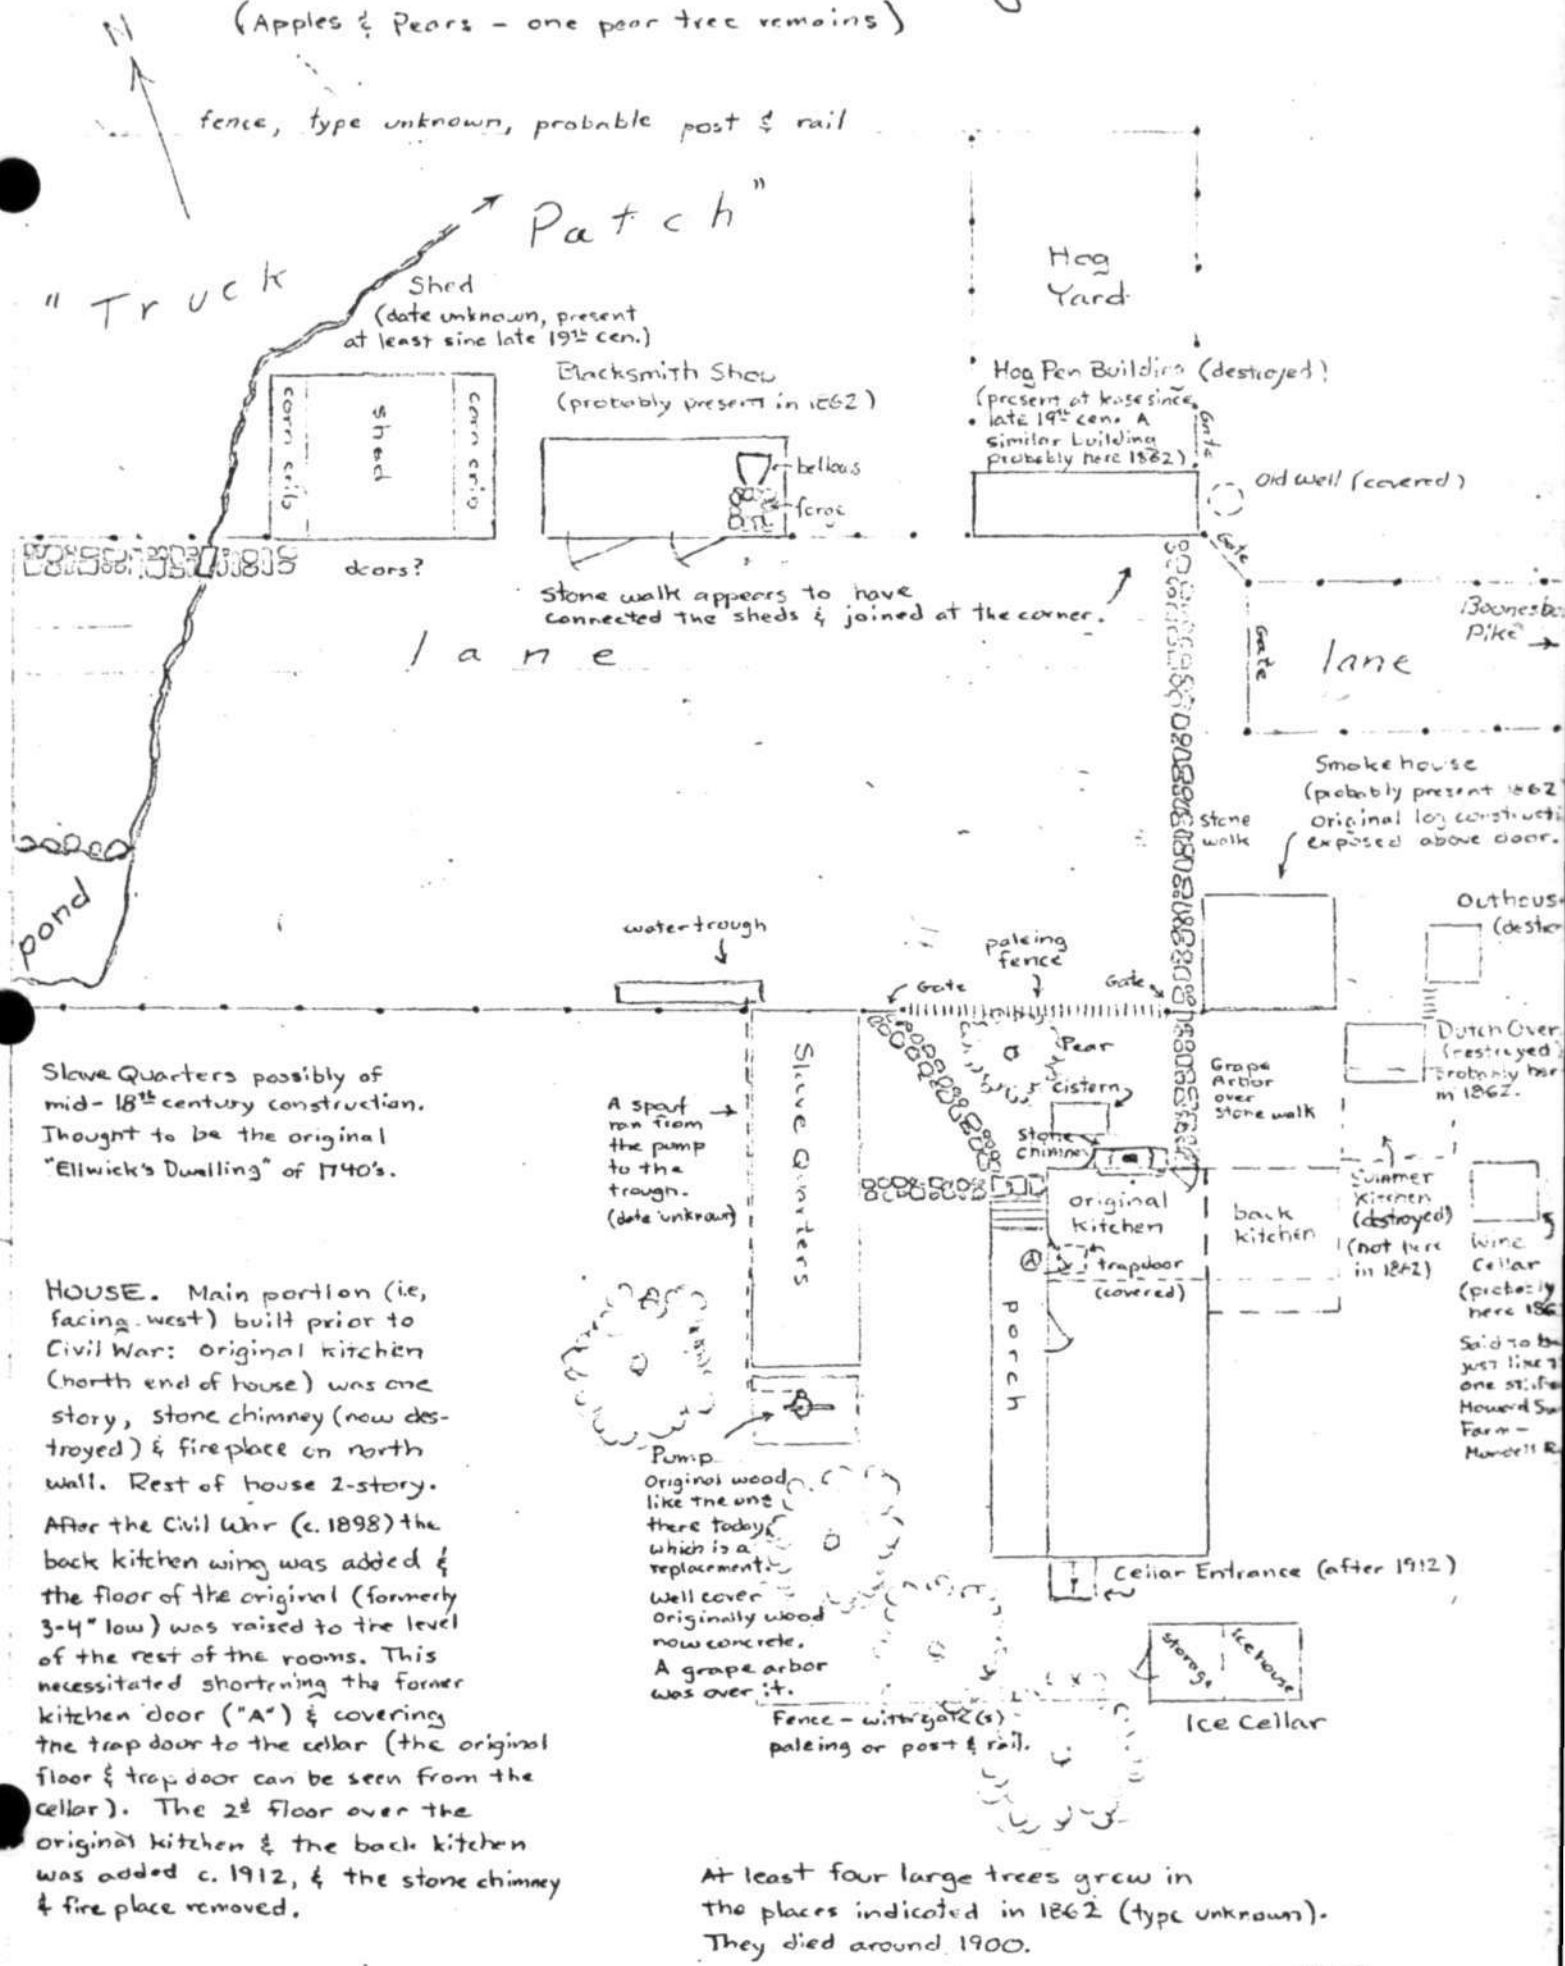 (Apples & Pears - one pear tree remains)
N
fence, type unknown, probable post & rail
"Truck Patch"
Hog
Yard
Shed
(date unknown, present
at least sine late 19th cen.)
Blacksmith Shop
(probably present in 1862)
Hog Pen Building (destroyed)
(present at lease since
late 19th cen. A
similar building
probably here 1862)
Gate
corn crib
shed
corn crib
bellows
forge
Old Well (covered)
doors?
Gate
Stone walk appears to have
connected the sheds & joined at the corner.
Pike
lane
Gate
lane
Smokehouse
(probably present 1862
original log
exposed above door.
stone
walk
pond
watertrough
paleing
fence
Gate
Gate
Slave Quarters possibly of
mid-18th century construction.
Thought to be the original
"Ellwick's Dwelling" of 1740's.
A spout
ran from
the pump
to the
trough.
(date unknown)
Slave Quarters
Pear
cistern
Stone
chimney
Grape
Arbor
over
stone walk
Dutch Oven
in 1862.
original
kitchen
back
kitchen
Summer
Kitchen
(destroyed)
(not here
in 1862)
Wine
Cellar
(probably
here
Said to be
just like
one
Howard
Farm-
A
trapdoor
(covered)
porch
HOUSE. Main portion (i.e,
facing west) built prior to
Civil War: original kitchen
(north end of house) was one
story, stone chimney (now des-
troyed) & fireplace on north
wall. Rest of house 2-story.
After the Civil War (c. 1898) the
back kitchen wing was added &
the floor of the original (formerly
3-4" low) was raised to the level
of the rest of the rooms. This
necessitated shortening the former
kitchen door ("A") & covering
the trap door to the cellar (the original
floor & trap door can be seen from the
cellar). The 2d floor over the
original kitchen & the back kitchen
was added c. 1912, & the stone chimney
& fire place removed.
Pump
Original wood
like the one
there today
which is a
replacement.
Well cover
originally wood
now concrete.
A grape arbor
was over it.
Cellar Entrance (after 1912)
storage
Icehouse
Ice Cellar
Fence - with gate(s)
paleing or post & rail.
At least four large trees grew in
the places indicated in 1862 (type unknown).
They died around 1900.